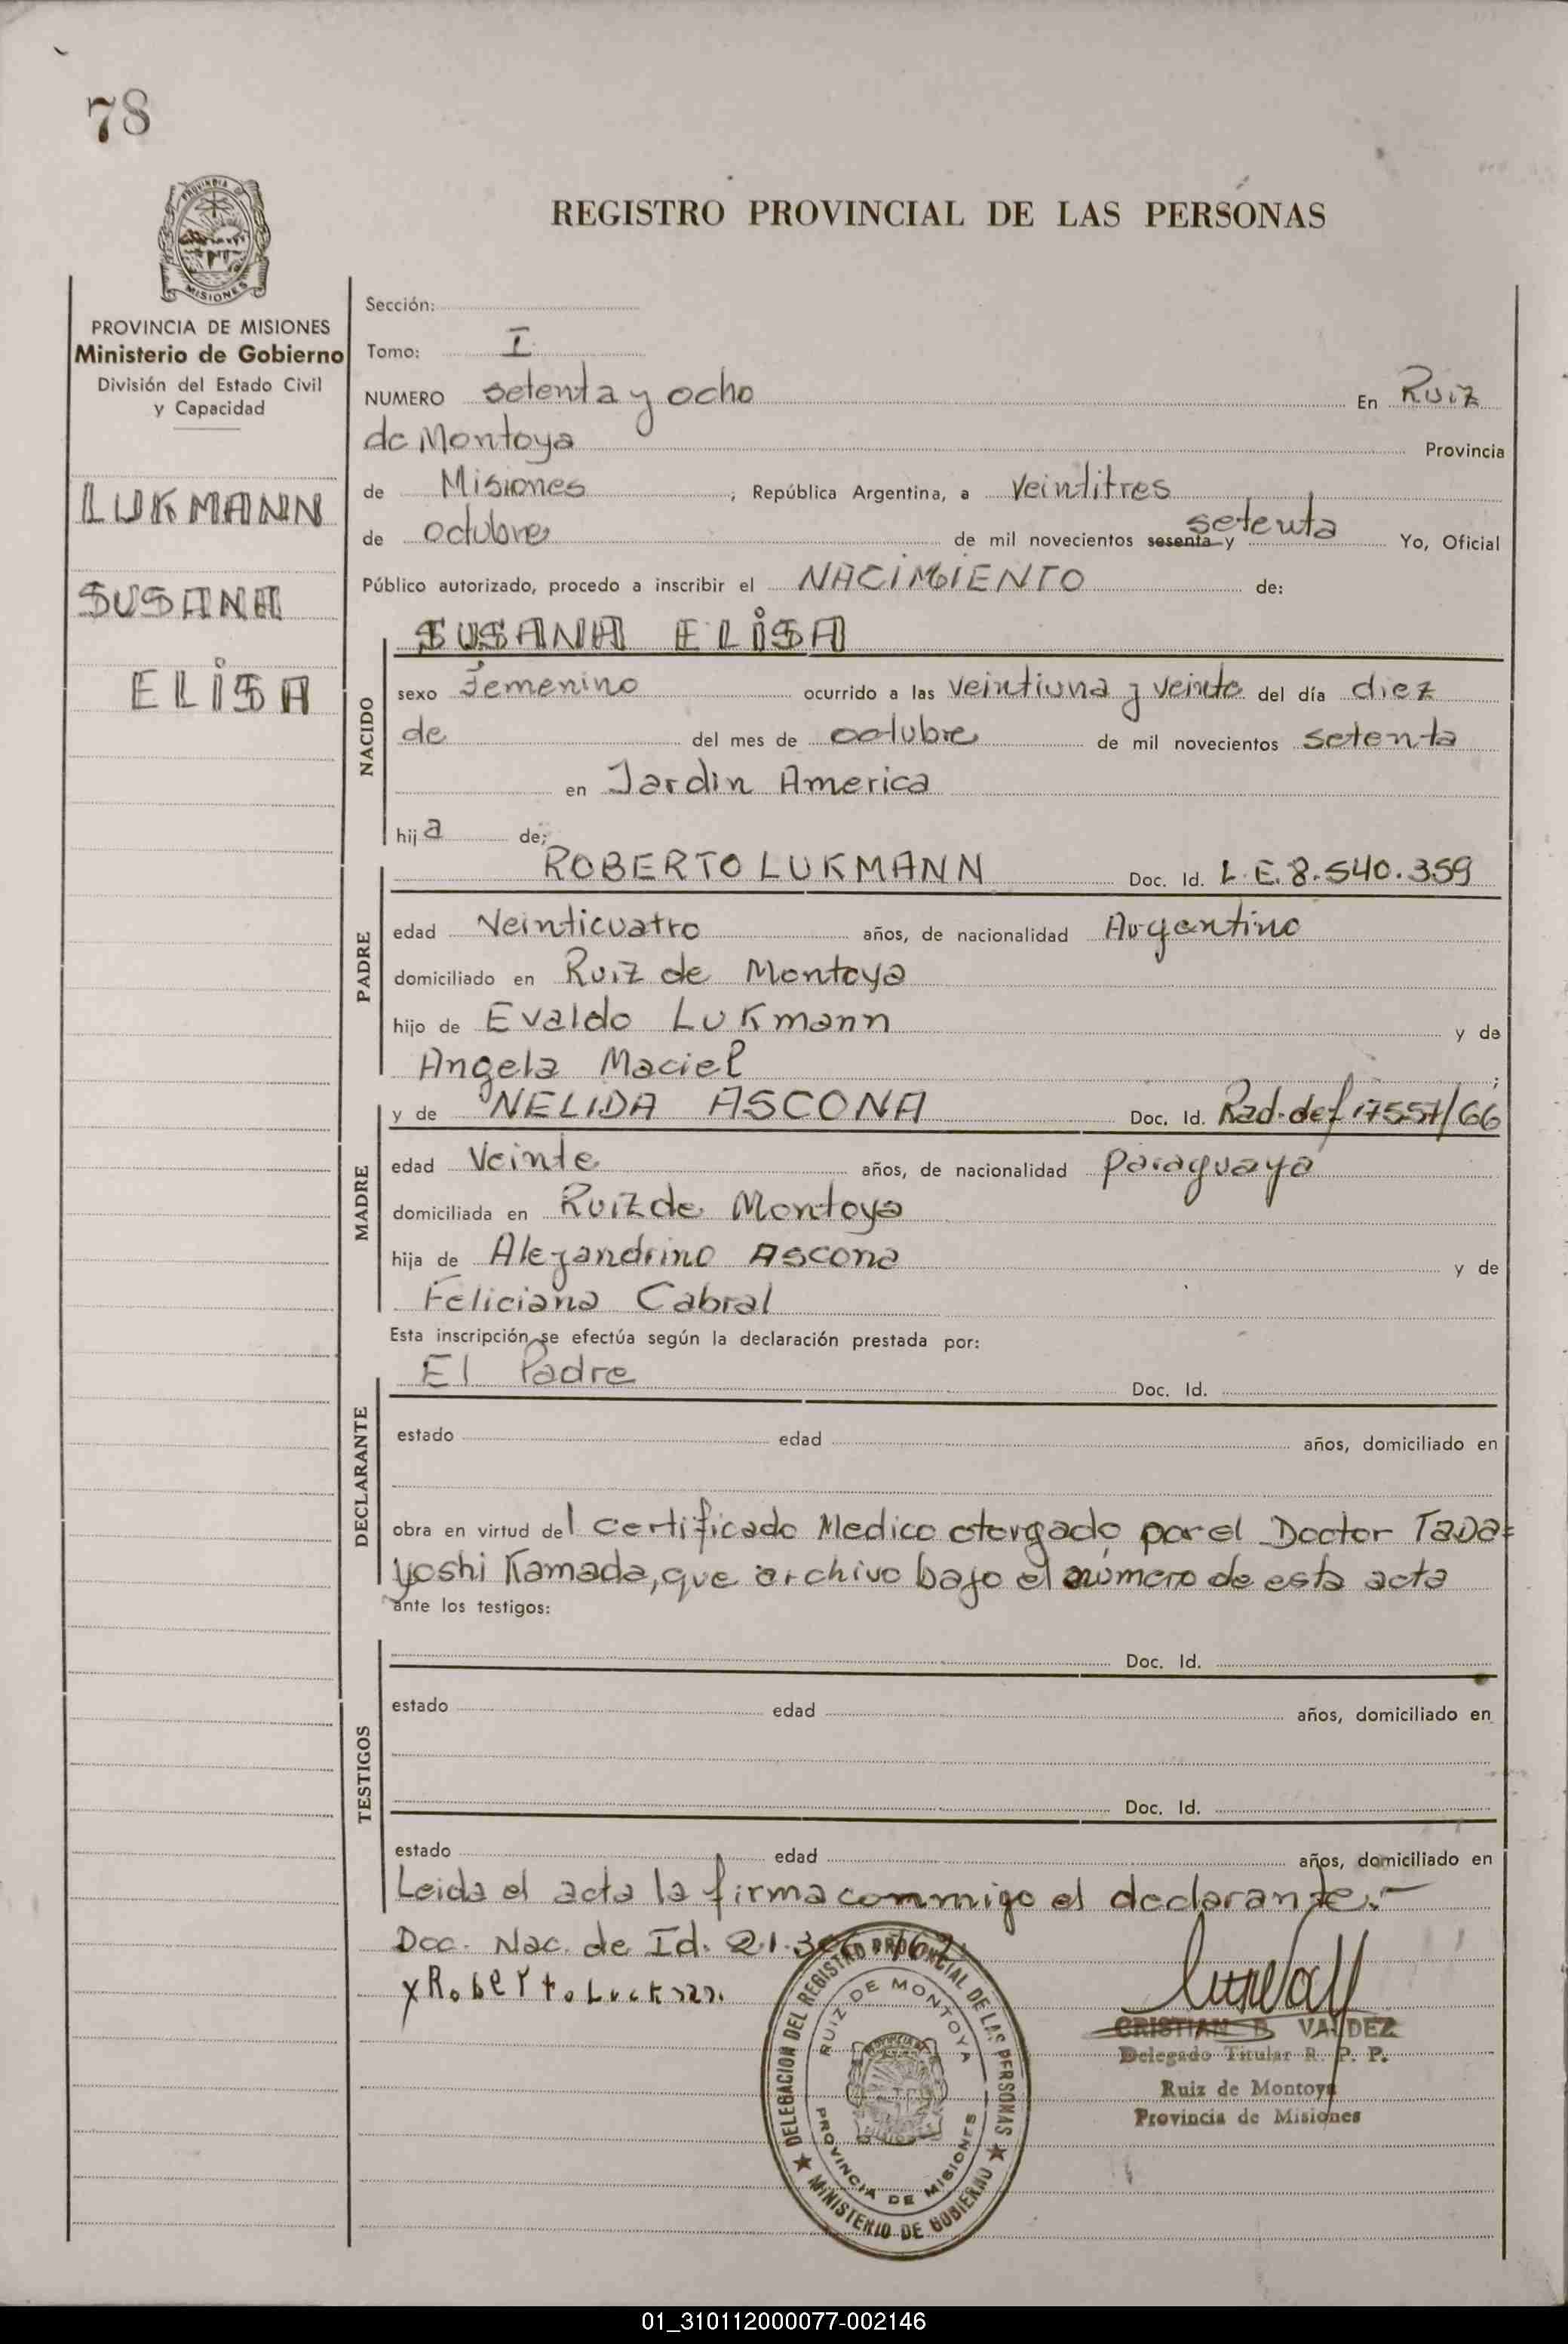 78
PROVINCIA DE
MISIONES
REGISTRO PROVINCIAL DE LAS PERSONAS
PROVINCIA DE MISIONES
Ministerio de Gobierno
División del Estado Civil
y Capacidad
LUKMANN
SUSANA
ELISA
Sección:
Tomo: I
NUMERO setenta y ocho En Ruiz
de Montoya Provincia
de Misiones, República Argentina, a veintitres
de octubre de mil novecientos sesenta y setenta Yo, Oficial
Público autorizado, procedo a inscribir el NACIMIENTO de:
NACIDO
SUSANA ELISA
sexo Femenino ocurrido a las veintiuna y veinte del día diez
de del mes de octubre de mil novecientos setenta
en Jardin America
hija de;
PADRE
ROBERTO LUKMANN Doc. Id. L.E. 8.540.359
edad Veinticuatro años, de nacionalidad Argentino
domiciliado en Ruiz de Montoya
hijo de Evaldo Lukmann y de
Angela Maciel;
MADRE
y de NELIDA ASCONA Doc. Id. Rad. def 17557/66
edad Veinte años, de nacionalidad paraguaya
domiciliada en Ruiz de Montoya
hija de Alejandrino Ascona y de
Feliciana Cabral
Esta inscripción se efectúa según la declaración prestada por:
DECLARANTE
El Padre Doc. Id.
estado edad años, domiciliado en
obra en virtud del certificado Medico otorgado por el Doctor Tada=
yoshi Kamada, que archivo bajo el número de esta acta
ante los testigos:
TESTIGOS
Doc. Id.
estado edad años, domiciliado en
Doc. Id.
estado edad años, domiciliado en
Leida el acta la firma conmmigo el declarante.-
Doc. Nac. de Id. 21.
x Roberto
DELEGACION DEL REGISTRO PROVINCIAL DE LAS PERSONAS
MINISTERIO DE GOBIERNO
RUIZ DE MONTOYA
PROVINCIA DE MISIONES
CRISTIAN D. VALDEZ
Delegado Titular R. P. P.
Ruiz de Montoya
Provincia de Misiones
01_310112000077-002146